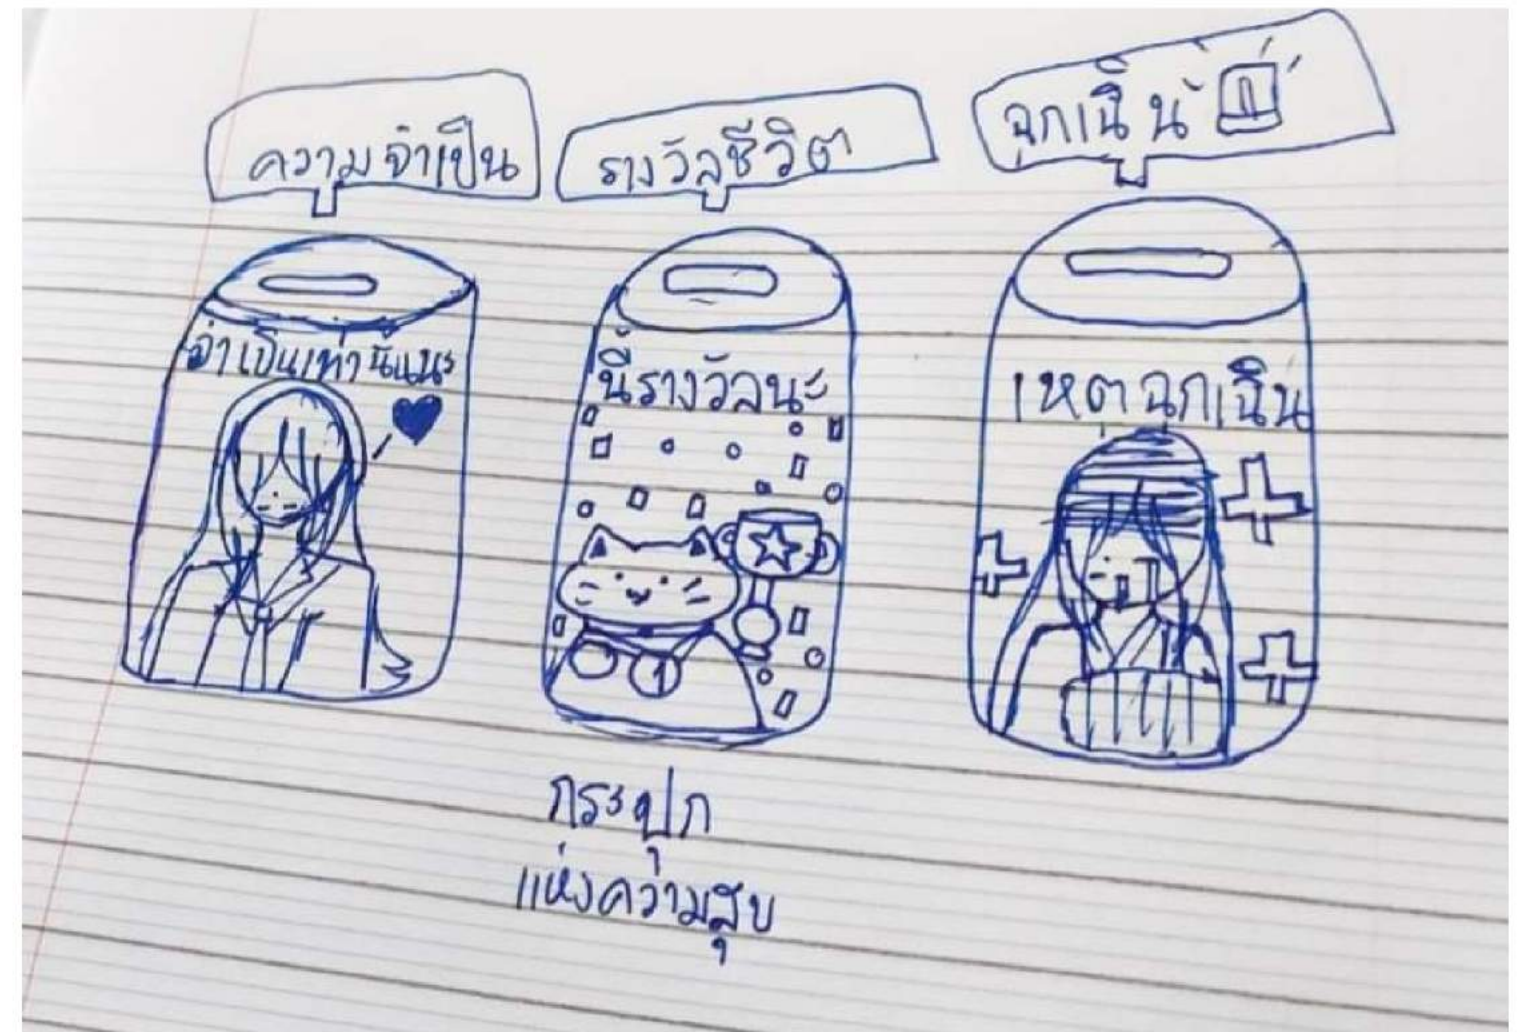 ความจำเป็น
รางวัลชีวิต
ฉุกเฉิน
จำเป็นเท่านั้นนะ
นี่รางวัลนะ
เหตุฉุกเฉิน
1
กระปุก
แห่งความสุข